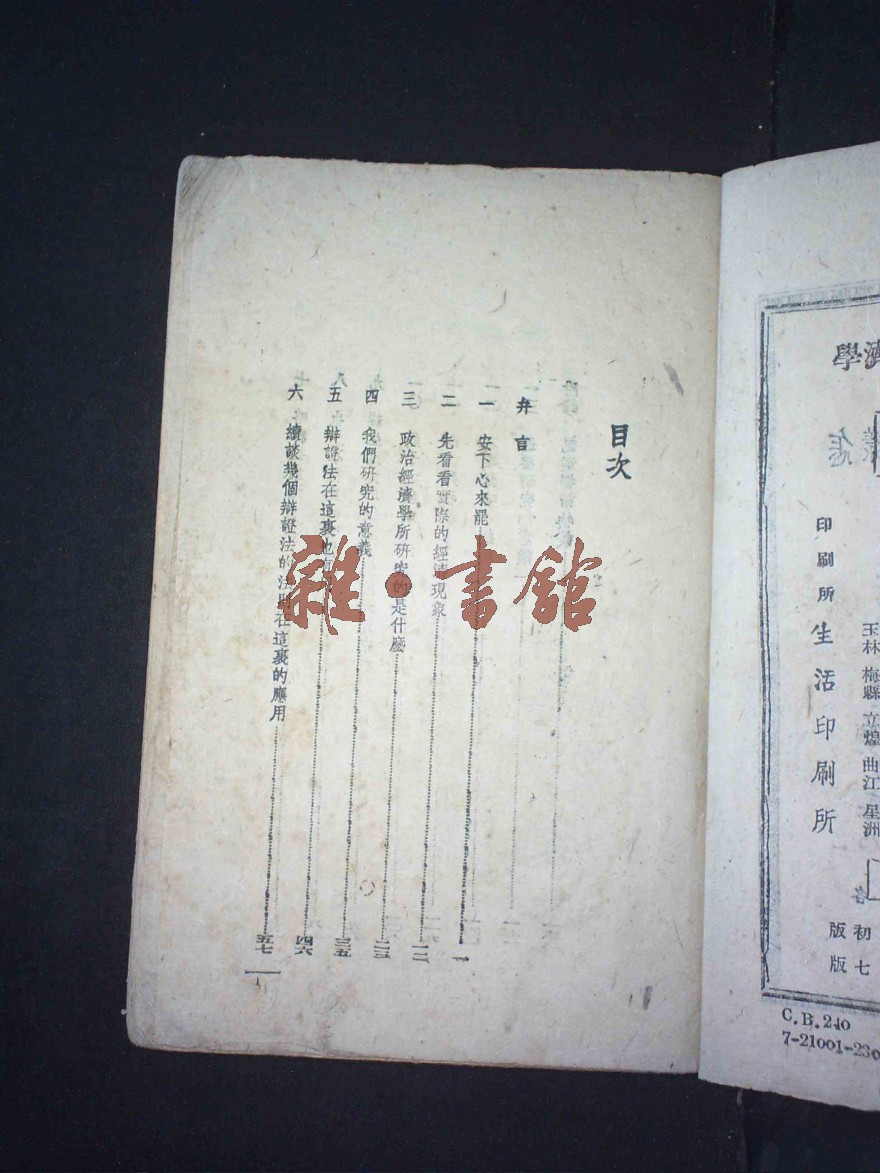 濟學
玉林 梅縣 立煌 曲江 星洲
印刷所 生活印刷所
初版
七版
C.B.240
7-21001-230
目次
弁言
一 安下心來罷 一
二 先看看實際的經濟現象 一二
三 政治經濟學所研究的是什麽 二三
四 我們研究的意義 三五
五 辯證法在這裏也有 四六
六 續談幾個辯證法的法則在這裏的應用 五七
一
雜·書館